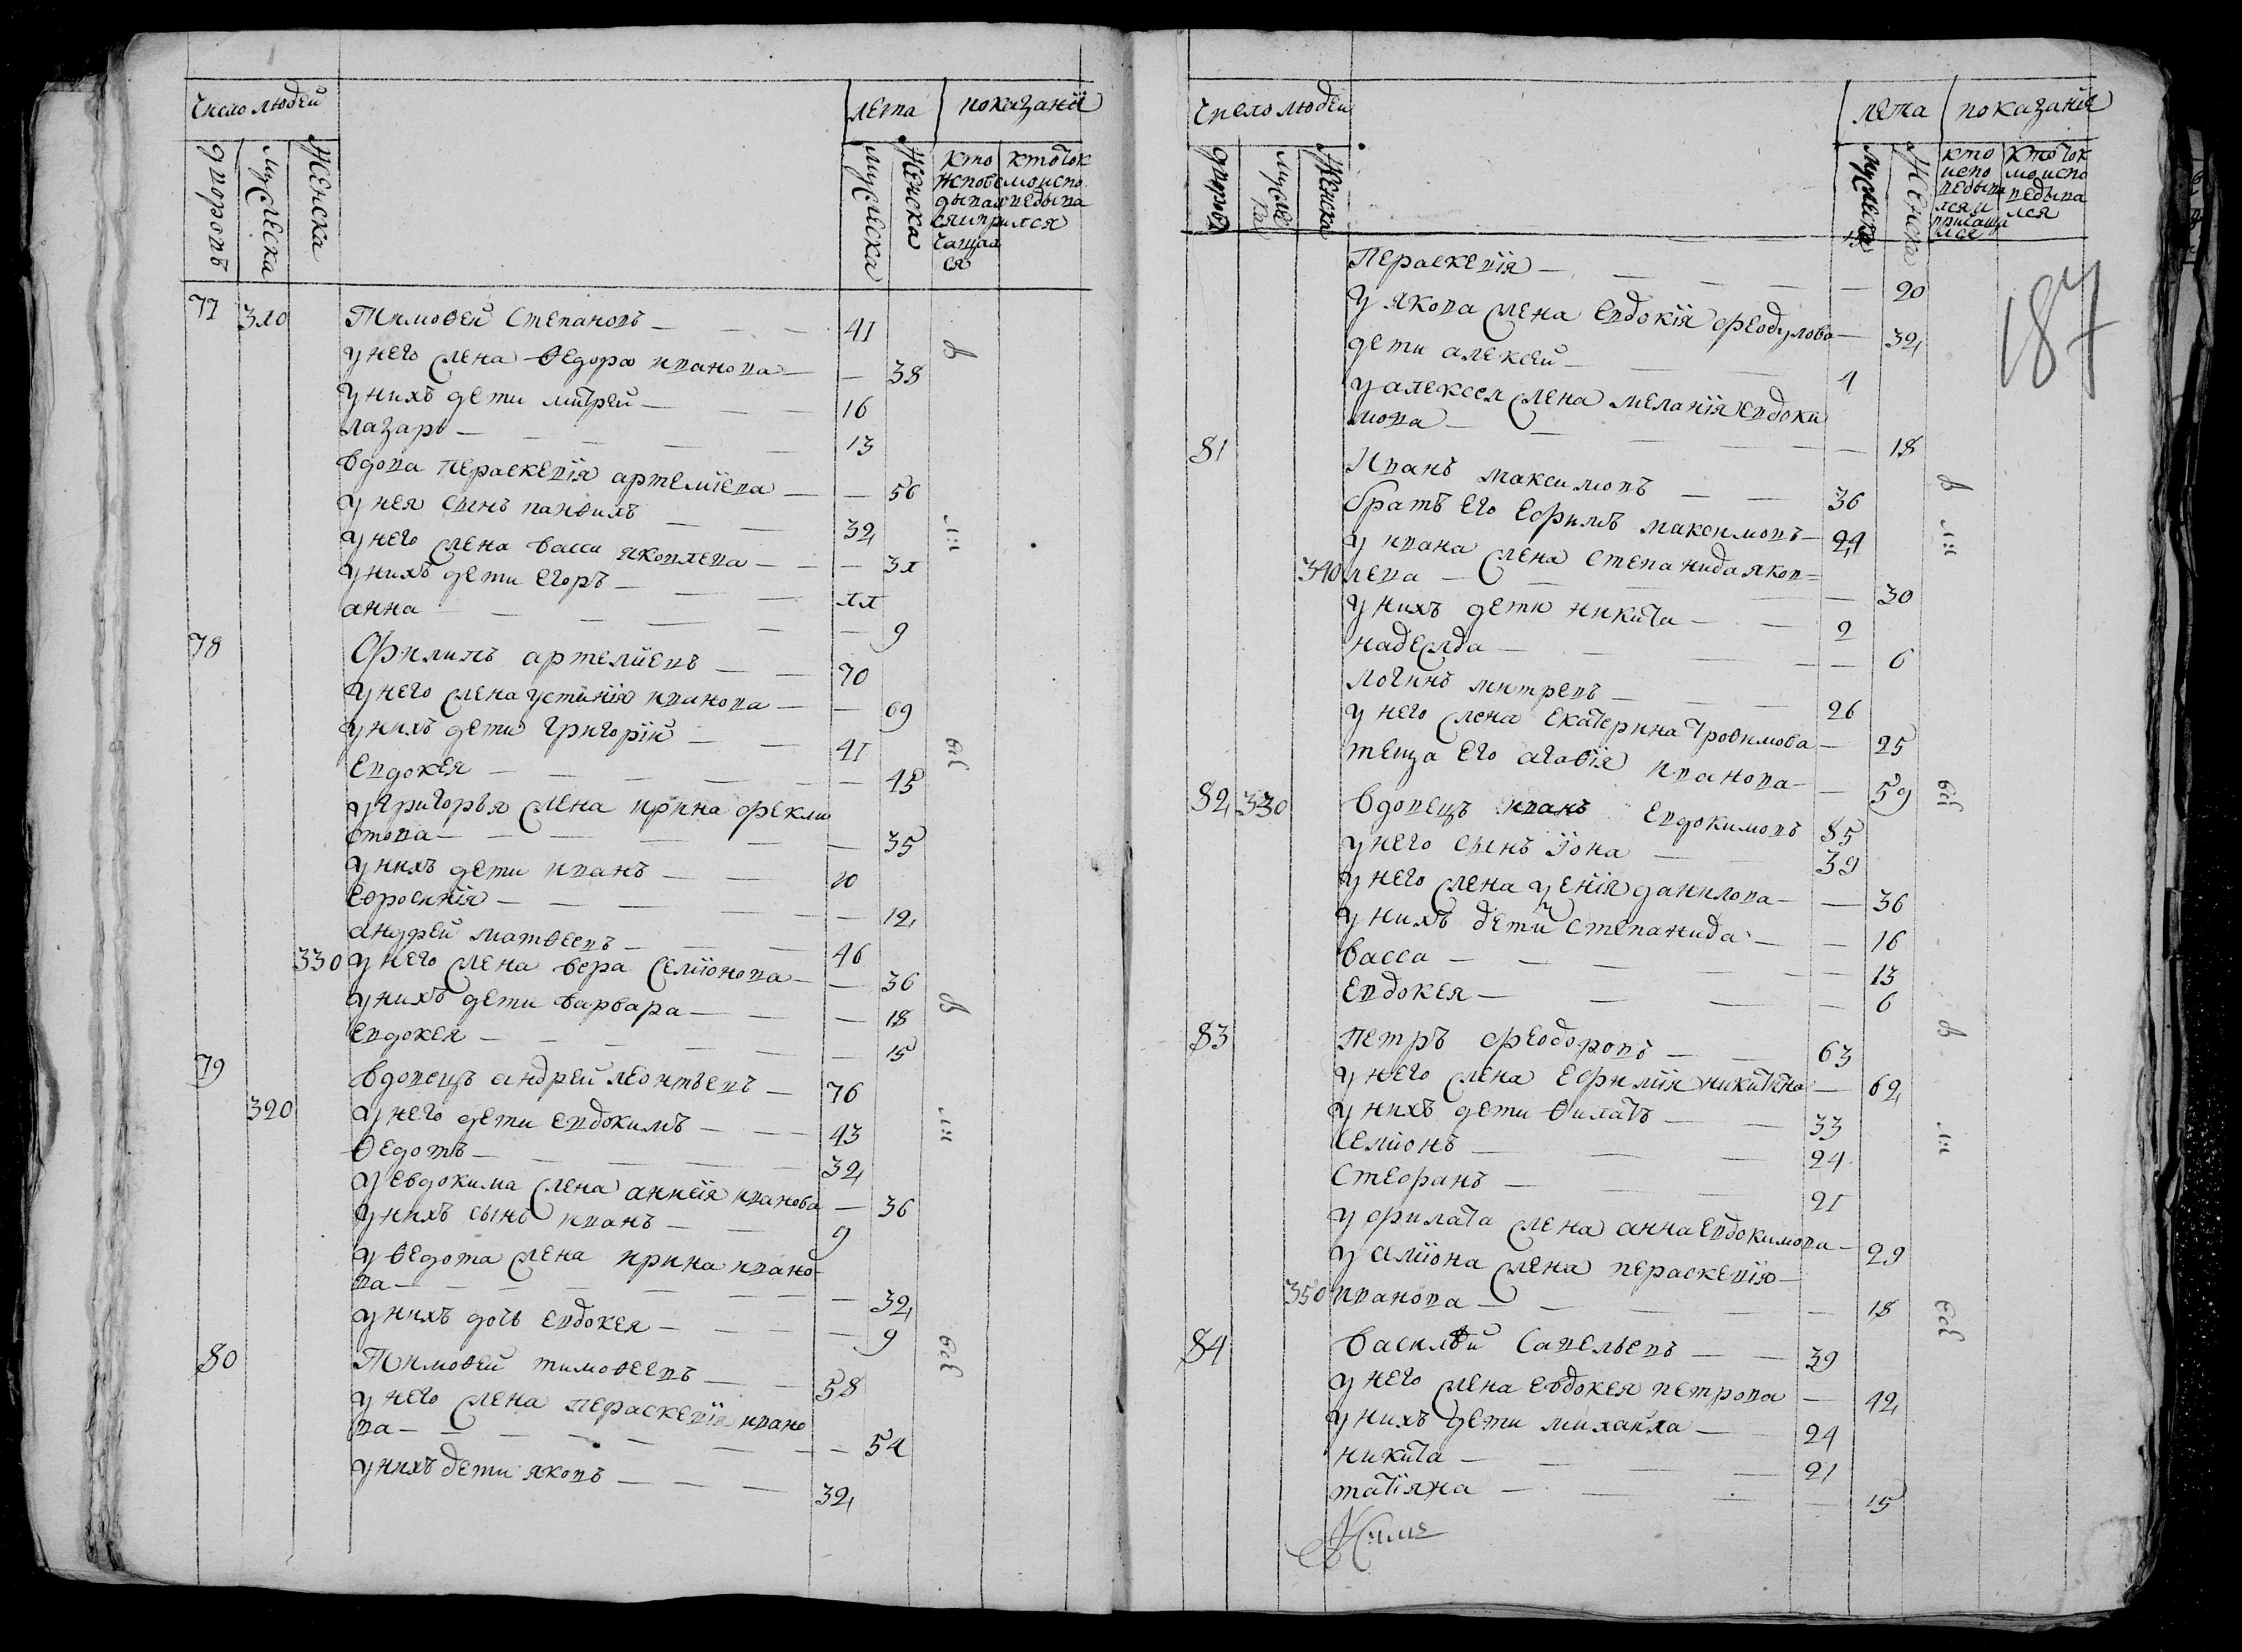 Число людей
лета
показаній
дворовъ
мужеска
женска
мужеска
женска
кто исповедывался и причащался
ктоток мо исповедывался
77 310 Тимоѳей Степановъ — 41
у него жена Ѳедора иванова — 38
у нихъ дети митрей — 16
лазарь — 13
вдова Пераскевія артеміева — 56
у нея сынъ панѳилъ — 32
у него жена васса яковлева — 31
у нихъ дети егоръ — 11
анна — 9
78 Филипъ артемиевъ — 70
у него жена устинія иванова — 69
у нихъ дети григорій — 41
Евдокея — 45
у григорья жена ирина фекли
стова — 35
у нихъ дети иванъ — 10
еѳросинія — 12
андрей матвеевъ — 46
330 у него жена вера семіонова — 36
у нихъ дети варвара — 18
евдокея — 15
79 вдовецъ андрей леонтьевъ — 76
320 у него дети евдокимъ — 43
ѳедотъ — 32
у евдокима жена аннсія иванова — 36
у нихъ сынъ иванъ — 9
у ѳедота жена ирина ивано-
ва — 32
у нихъ дочь евдокея — 9
80 Тимоѳей тимоѳеевъ — 58
у него жена пераскевія ивано
ва — 54
у нихъ дети яковъ — 32
Число людей
лета
показаніѧ
дворовъ
мужеска
женска
мужеска
женска
кто исповедывался и причащался
кто ток мо исповедывался
187
Пераскевія — 20
у якова жена Евдокія феодулова — 32
дети алексей — 4
у алексея жена меланія евдоки
мова — 18
81 Иванъ максимовъ — 36
братъ его ефимъ максимовъ — 24
у ивана жена степанида яков=
340 лева — 30
у нихъ дети никита — 2
надежда — 6
логинъ митревъ — 26
у него жена екатерина троѳимова — 25
теща его агаѳія иванова — 59
82 330 вдовецъ иванъ евдокимовъ 85
у него сынъ Іона — 39
у него жена уенія данилова — 36
у нихъ дети степанида — 16
васса — 13
евдокея — 6
83 петръ феодоровъ — 63
у него жена ефимія никитина — 62
у нихъ дети ѳилатъ — 33
семіонъ — 24
стефанъ — 21
у филата жена анна евдокимова — 29
у семіона жена пераскевія —
350 иванова — 18
84 василѣй савельевъ — 39
у него жена евдокея петрова — 42
у нихъ дети михаила — 24
никита — 21
татіяна — 15